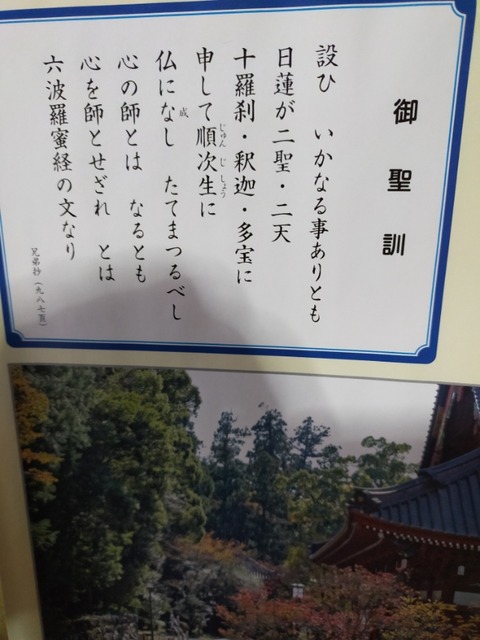 御聖訓
設ひ　いかなる事ありとも
日蓮が二聖・二天
十羅刹・釈迦・多宝に
申して順次生に
じゅんじしょう
仏になし　たてまつるべし
成
心の師とは　なるとも
心を師とせざれ　とは
六波羅蜜経の文なり
兄弟抄（九八七頁）